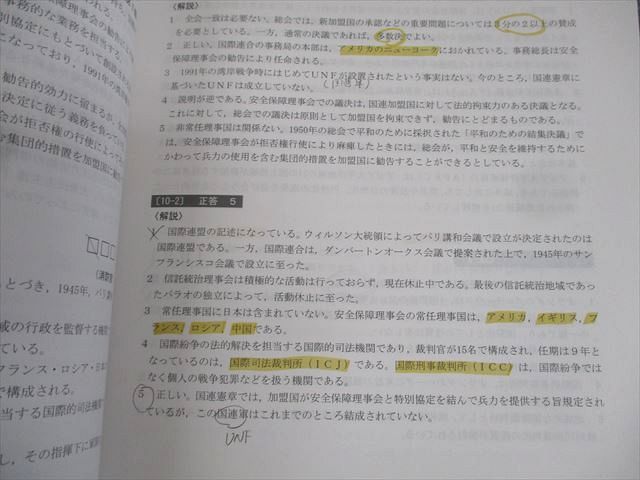 〈解説〉
1 全会一致は必要ない。総会では，新加盟国の承認などの重要問題については3分の2以上の賛成
を必要としている。一方，通常の決議であれば，多数決でよい。
2 正しい。国際連合の事務局の本部は，アメリカのニューヨークにおかれている。事務総長は安全
保障理事会の勧告により任命される。
3 1991年の湾岸戦争時にはじめてUNFが設置されたという事実はない。今のところ，国連憲章に
基づいたUNFは成立していない。
4 説明が逆である。安全保障理事会での議決は，国連加盟国に対して法的拘束力のある決議となる。
これに対して，総会での議決は原則として加盟国を拘束できず，勧告にとどまるものである。
5 非常任理事国は関係ない。1950年の総会で平和のために採択された「平和のための結集決議」で
は，安全保障理事会が拒否権行使により麻痺したときには，総会が，平和と安全を維持するために
かわって兵力の使用を含む集団的措置を加盟国に勧告することができるとしている。
〔10-2〕 正答 5
〈解説〉
1 国際連盟の記述になっている。ウィルソン大統領によってパリ講和会議で設立が決定されたのは
国際連盟である。一方，国際連合は，ダンバートンオークス会議で提案された上で，1945年のサン
フランシスコ会議で設立に至った。
2 信託統治理事会は積極的な活動は行っておらず，現在休止中である。最後の信託統治地域であっ
たパラオの独立によって，活動休止に至った。
3 常任理事国に日本は含まれていない。安全保障理事会の常任理事国は，アメリカ，イギリス，フ
ランス，ロシア，中国である。
4 国際紛争の法的解決を担当する国際的司法機関であり，裁判官が15名で構成され，任期は9年と
なっているのは，国際司法裁判所（ICJ）である。国際刑事裁判所（ICC）は，国際紛争では
なく個人の戦争犯罪などを扱う機関である。
5 正しい。国連憲章では，加盟国が安全保障理事会と特別協定を結んで兵力を提供する旨規定され
ているが，この国連軍はこれまでのところ結成されていない。
UNF